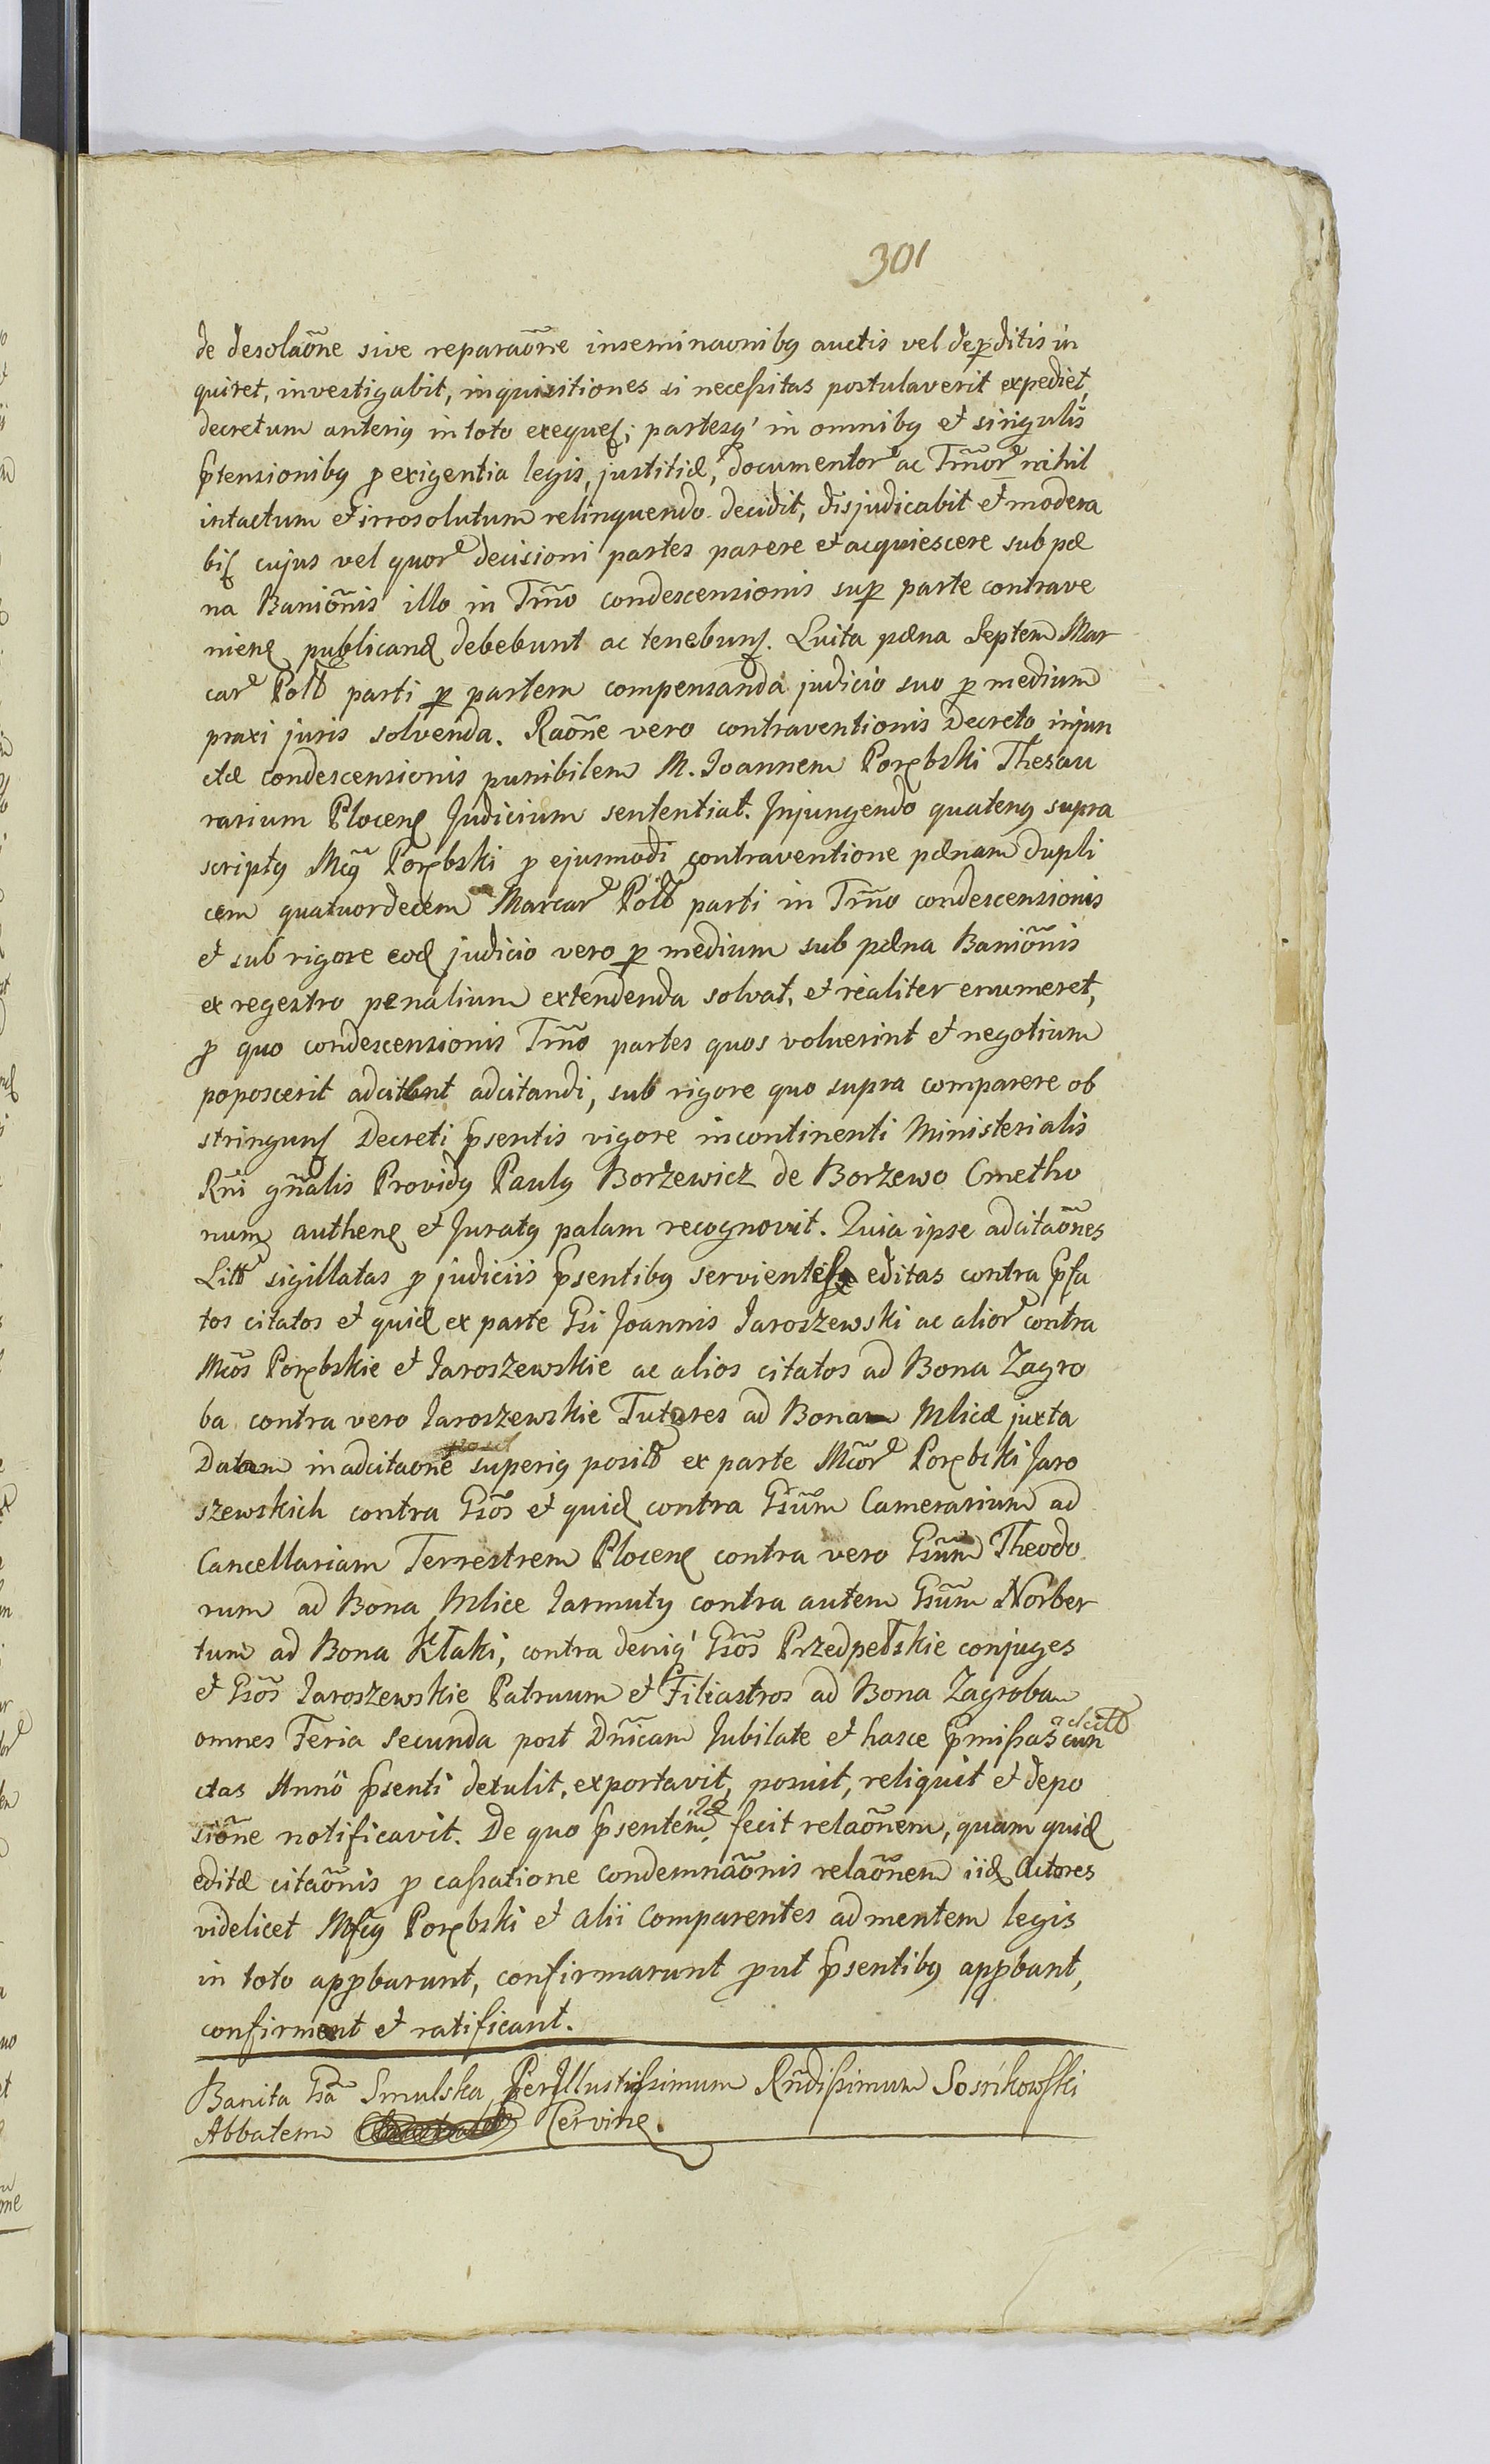 301
de desolaõne sive reparaõne inseminaonibꝰ auctis vel deꝑditis in
quiret, investigabit, inquisitiones si necessitas postulaverit expediet,
decretum anteriꝰ in toto exequeʃ; partesq' in omnibꝰ et singulis
p̃tensionibꝰ ꝓ exigentia legis, justitiæ, documentorᷣ ac Tr̃norᷣ nihil
intactum et irrosolutum relinquendo decidit, disjudicabit et modera
biʃ cujus vel quorᷣ decisioni partes parere et acquiescere sub pæ
na Baniõnis illo in Tr̃no condescensionis suꝑ parte contrave
nienꝭ publicandꝭ debebunt ac tenebunʃ. Luita pæna Septem Mar
carᷣ Poll̃ parti ꝑ partem compensanda judicio suo ꝑ medium
praxi juris solvenda. Raõne vero contraventionis Decreto injun
ctæ condescensionis punibilem M. Joannem Porębski Thesau
rarium Plocenꝭ Judicium sententiat. Injungendo quatenꝰ supra
scriptꝰ Mc̃ꝰ Porębski ꝓ ejusmodi contraventione pænam dupli
cem quatuordecem Marcarᷣ Poll̃ parti in Tr̃no condescensionis
et sub rigore eodꝭ judicio vero ꝑ medium sub pæna Baniõnis
ex regestro penalium extendenda solvat, et realiter enumeret,
ꝓ quo condescensionis Tr̃no partes quos voluerint et negotium
poposcerit adcitent adcitandi, sub rigore quo supra comparere ob
stringunʃ Decreti p̃sentis vigore incontinenti Ministerialis
Rñi gñalis Providꝰ Paulꝰ Borzewicz de Borzewo Cmetho
num authenꝭ et Juratꝰ palam recognovit. Quia ipse adcitaõnes
Litt̃ sigillatas ꝓ judiciis p̃sentibꝰ servientes editas contra p̃fa
tos citatos et quidꝭ ex parte Gsi Joannis Jaroszewski ac aliorᷣ contra
Mcõs Porębskie et Jaroszewskie ac alios citatos ad Bona Zagro
ba contra vero Jaroszewskie Tutores ad Bona Mlicæ juxta
Datam in adcitaone superiꝰ posit̃ ex parte Mcõrᷣ Porębski Jaro
szewskich contra Gsõs et quidꝭ contra Gsũm Camerarium ad
Cancellariam Terrestrem Plocenꝭ contra vero Gsũm Theodo
rum ad Bona Mlice Jarmuty contra autem Gsũm Norber
tum ad Bona Kłaki, contra deniq' Gsõs Przedpełskie conjuges
et Gsõs Jaroszewskie Patruum et Filiastros ad Bona Zagroba
omnes Feria Secunda post Dñicam Jubilate et hasce p̃missas adcitt̃ cun
ctas Anno p̃senti detulit, exportavit, posuit, reliquit et depo
siõne notificavit. De quo p̃sentem fecit relaõnem, quam quidꝭ
editæ citaõnis ꝓ cassatione condemnaõnis relaõnem iidꝭ Actores
videlicet Mfcꝰ Porębski et Alii Comparentes ad mentem legis
in toto apꝓbarunt, confirmarunt ꝓut p̃sentibꝰ apꝓbant,
confirmant et ratificant.
Banita Gsã Smulska PerIllustrissimum Rñdissimum Sosńkowski
Abbatem Cervinꝭ.